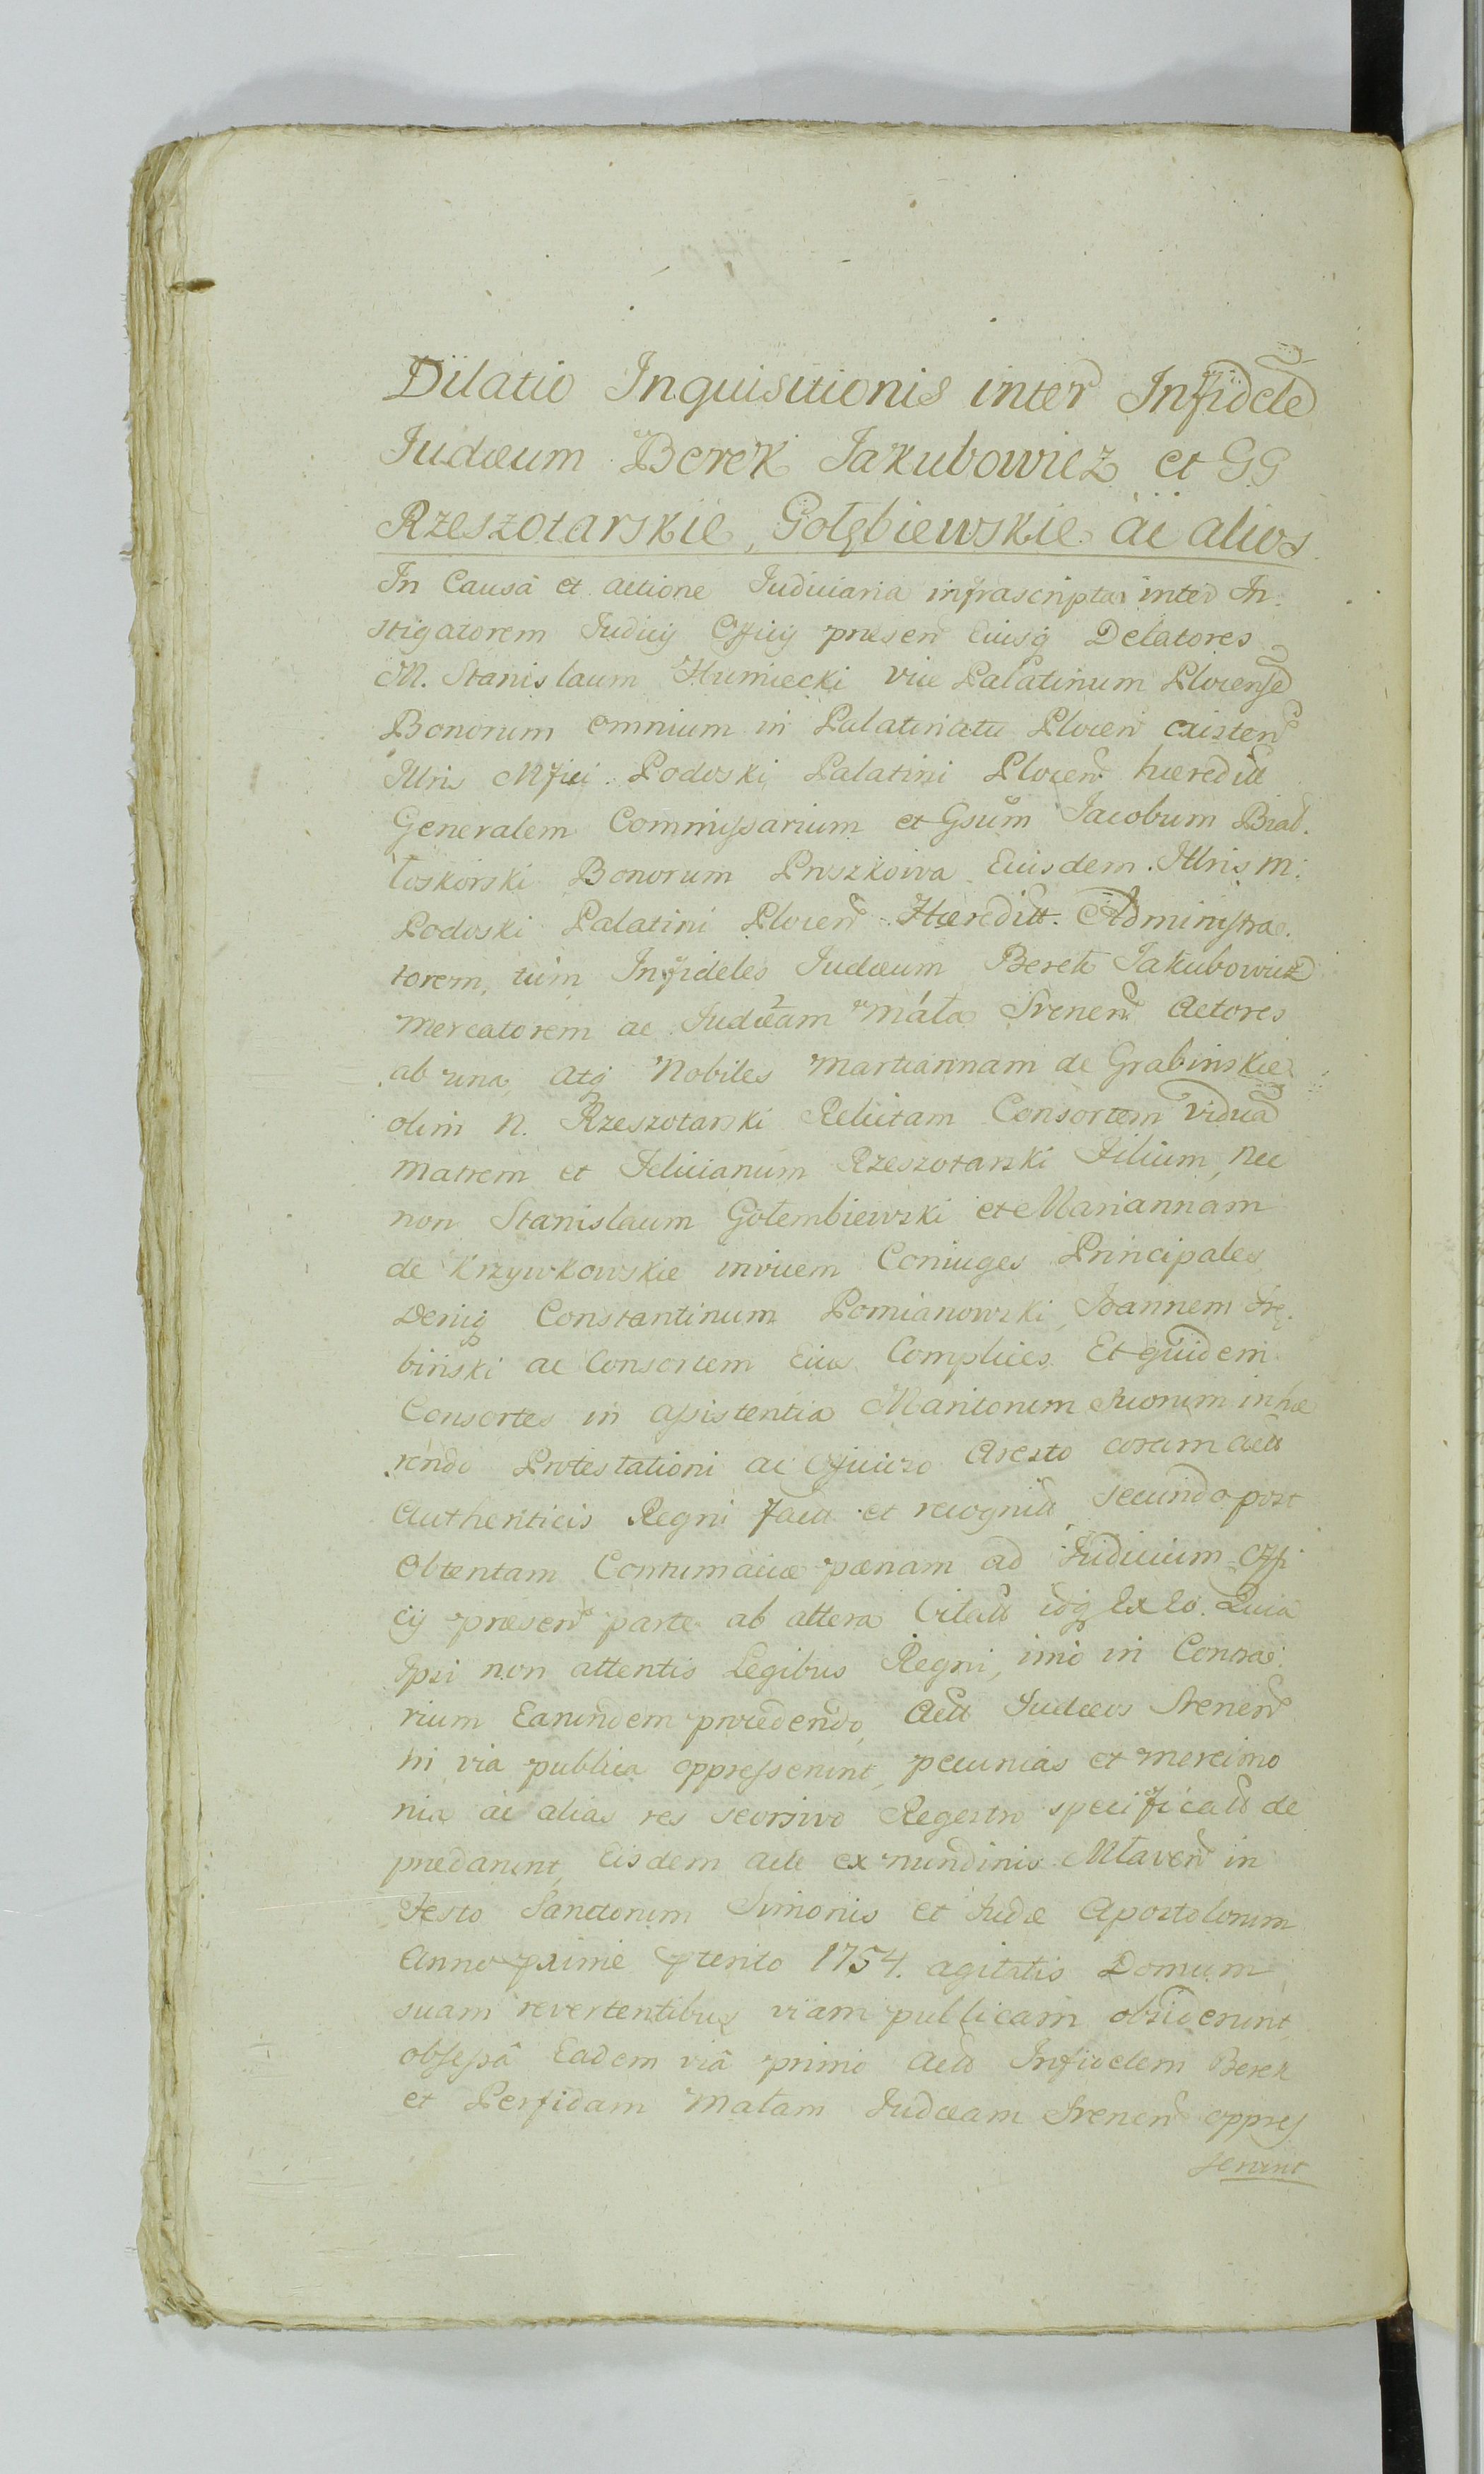 Dilatio Inquisitionis inter Infidele
Iudæum Berek Jakubowicz et GG
Rzeszotarskie, Gołębiewskie ac alios
In Causâ et actione Iudiciaria infrascripta inter In
stigatorem Iudicij Officij præsen Eiusq Delatores
M. Stanislaum Humiecki vice Palatinum Plocense
Bonorum omnium in Palatinatu Plocen existen
Illris Mfici Podoski Palatini Plocen hæreditt
Generalem Commissarium et Gsum Iacobum Biał.
łoskorski Bonorum Pruszkowa Eiusdem Illris M:
Podoski Palatini Plocen Hæreditt. Administra.
torem, tùm Infideles Iudæum Berek Jakubowicz
Mercatorem ac Iudæam Máła Srenen Actores
ab una, atq Nobiles Mariannam de Grabinskie
olim N. Rzeszotarski Relictam Consortem viduã
Matrem et Felicianum Rzeszotarski Filium, nec
non Stanislaum Gołembiewski et Mariannam
de Krzywkowskie invicem Coniuges Principales
Deniq Constantinum Pomianowski, Ioannem Trę.
biński ac Consortem Eius Complices Et quidem
Consortes in assistentia Maritorum Suorum inhæ
rendo Protestationi ac Officioso Aresto coram Actt
Authenticis Regni fact et recognitt, secundo post
Obtentam Contumaciæ pœnam ad Iudicium Offi
cij præsen parte ab altera Citatt idq Ex Eo. Quia
Ipsi non attentis Legibus Regni, imò in Contra
rium Earundem procedendo, Actt Iudæos Srenen
in via publica oppresserunt, pecunias et mercimo
nia ac alias res seorsivo Regestro specificatt de
prædarunt, Eisdem Actt ex nundinis Mlaven in
Festo Sanctorum Simonis et Iudæ Apostolorum
Anno proxime præterito 1754. agitatis Domum
suam revertentibus viam publicam obsiderunt
obsessâ Eadem viâ primo Actt Infidelem Berek
et Perfidam Małam Iudæam Srenen oppres
serunt